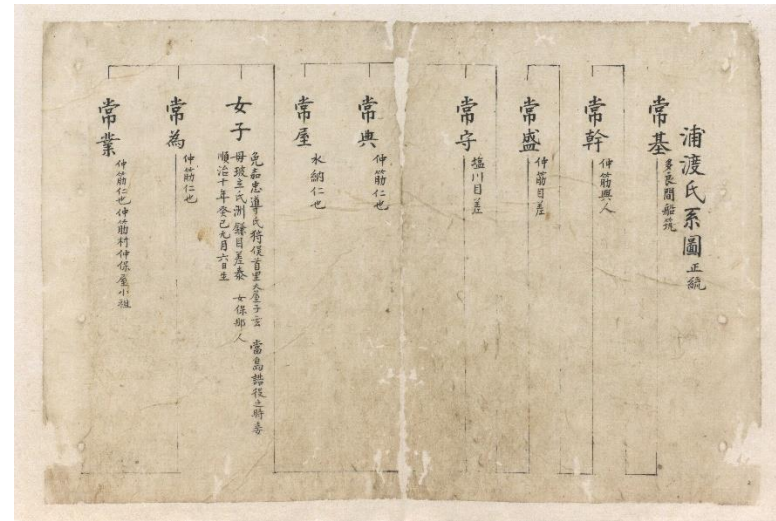 浦渡氏系圖 正統
常基 多良間船筑
常幹 仲筋與人
常盛 仲筋目差
常守 塩川目差
常典 仲筋仁也
常屋 水納仁也
女子
忠導氏狩俣首里大屋子玄 當島詰役之時妾
母玻立氏洲鎌目差泰 女保那人
順治十年癸巳九月六日生
常為 仲筋仁也
常業 仲筋仁也仲筋村仲保屋小